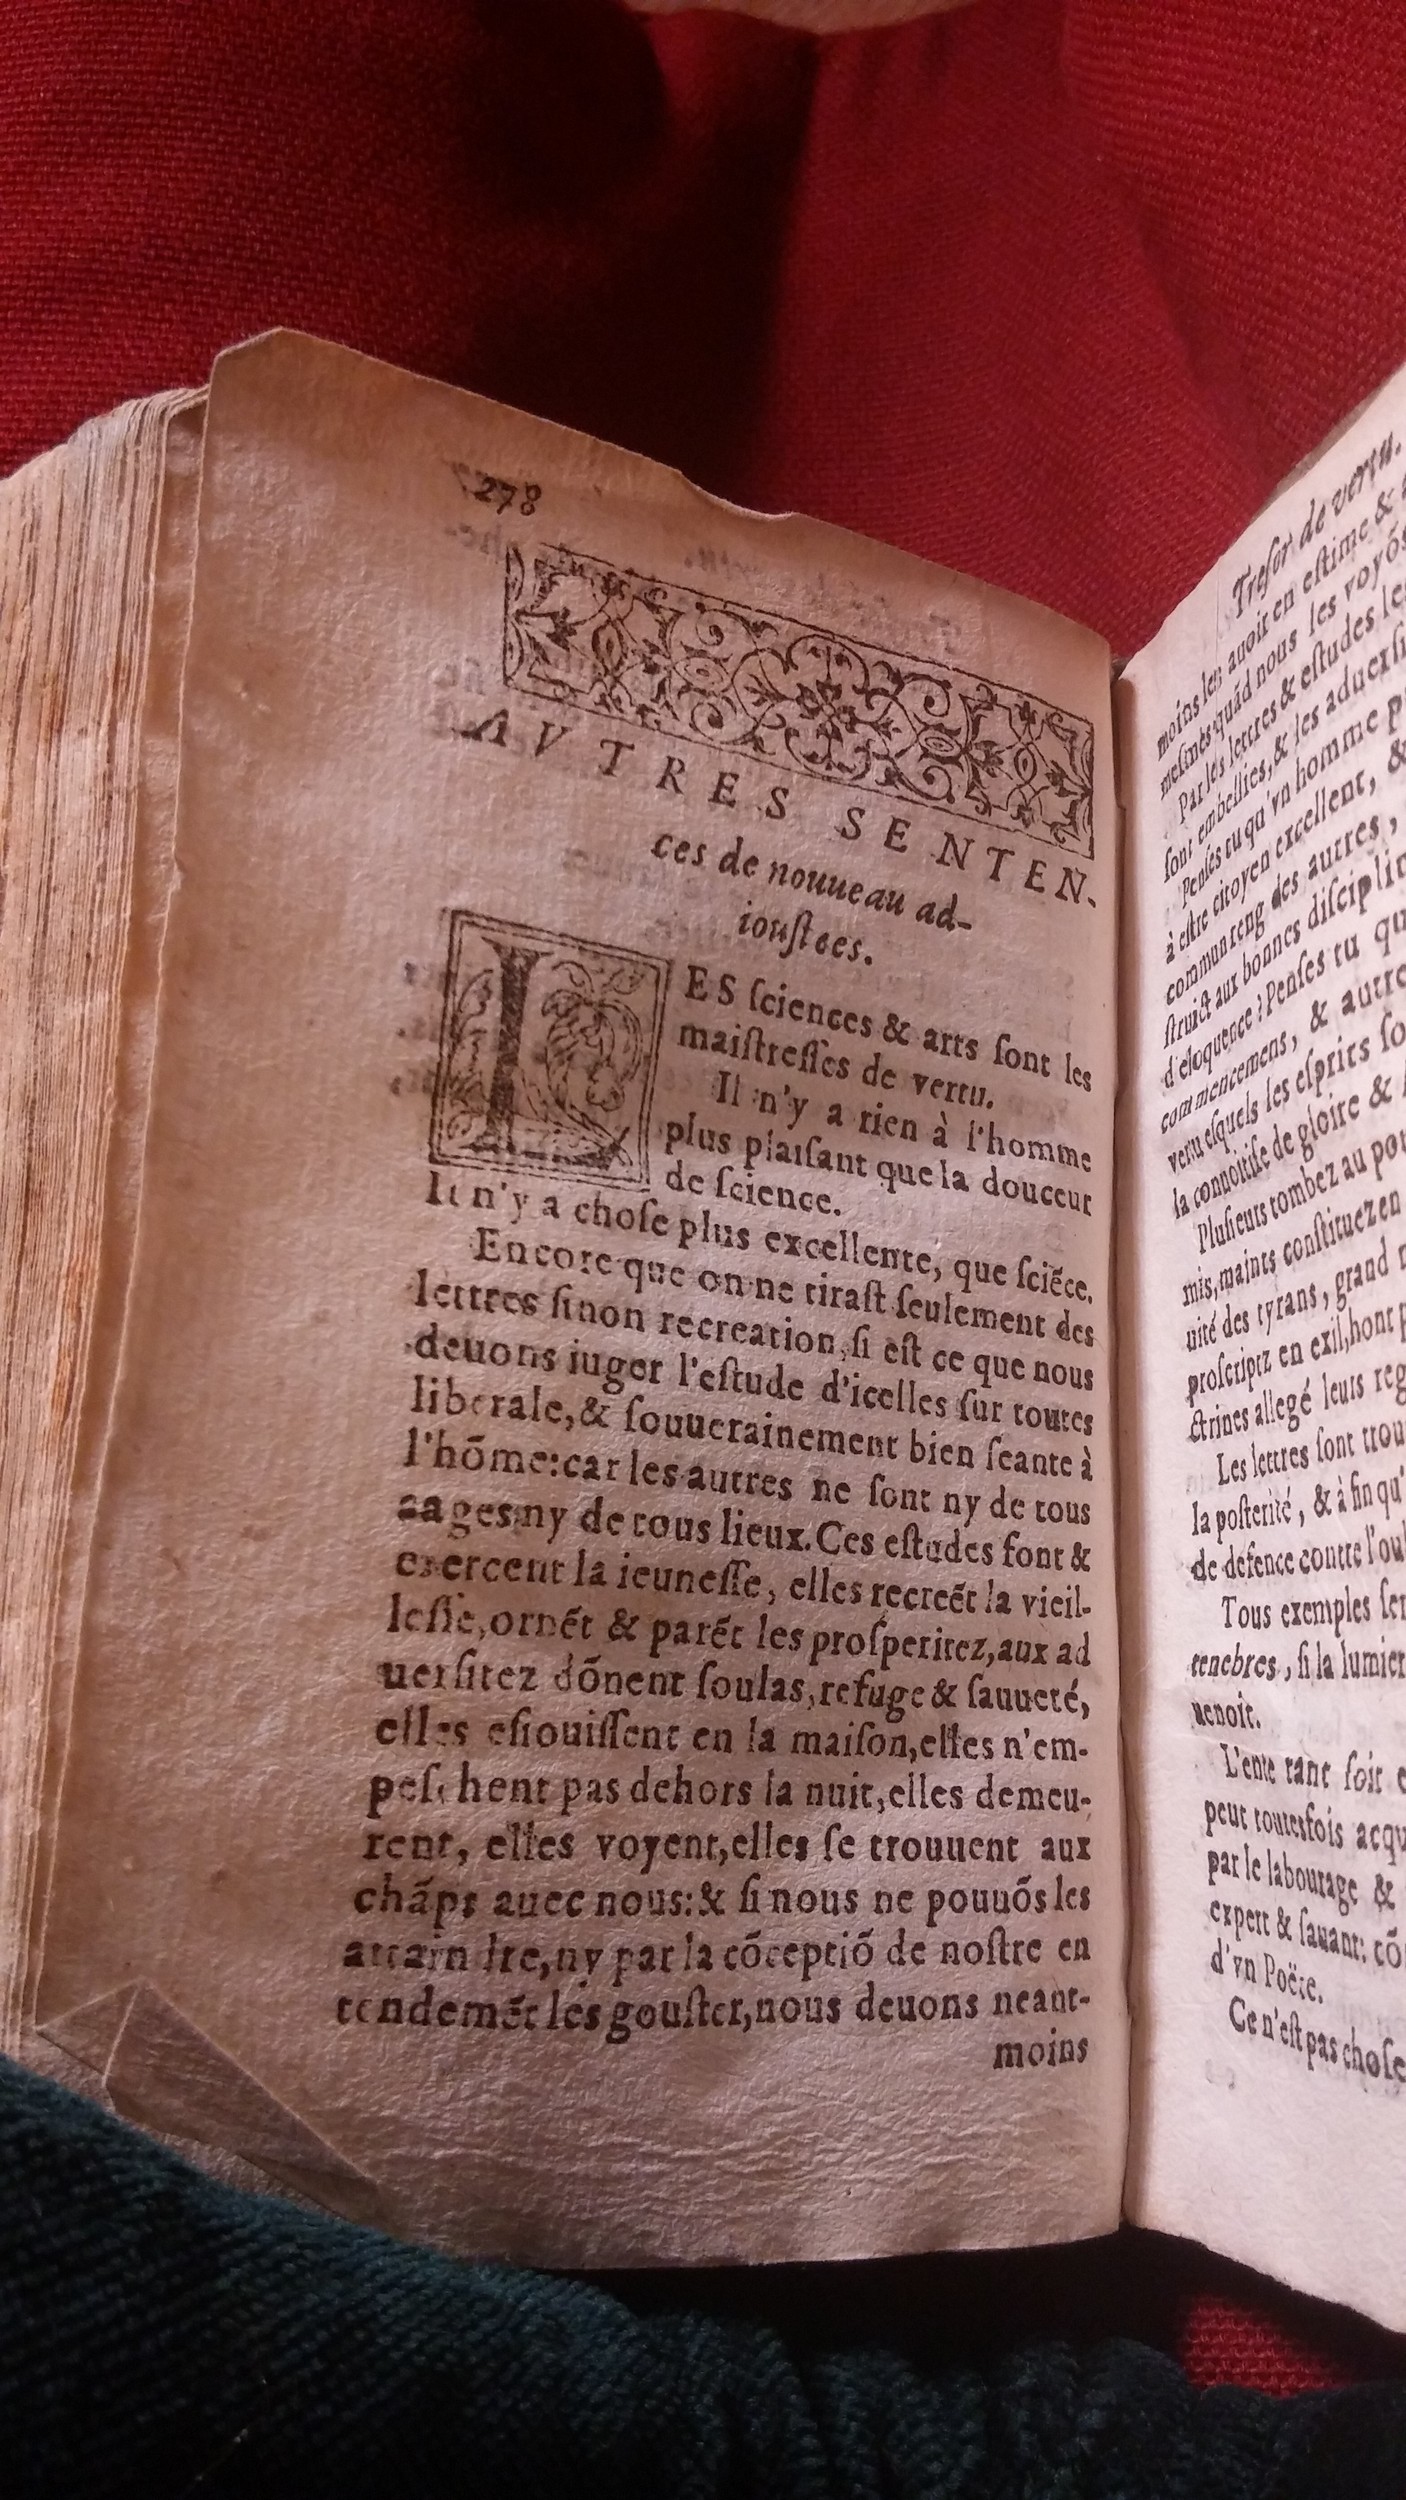 278
AVTRES SENTEN-
ces de nouueau ad-
iouſtees.
LES ſciences & arts ſont les
maiſtreſſes de vertu.
Il n'y a rien à l'homme
plus plaiſant que la douceur
de ſcience.
Il n'y a choſe plus excellente, que ſciẽce.
Encore que on ne tiraſt ſeulement des
lettres ſinon recreation, ſi eſt ce que nous
deuons iuger l'eſtude d'icelles ſur toutes
liberale, & ſouuerainement bien ſeante à
l'hõme: car les autres ne ſont ny de tous
aages ny de tous lieux. Ces eſtudes font &
exercent la ieuneſſe, elles recreẽt la vieil-
leſſe, ornẽt & parẽt les proſperitez, aux ad
uerſitez dõnent ſoulas, refuge & ſauueté,
elles eſiouiſſent en la maiſon, elles n'em-
peſchent pas dehors la nuit, elles demeu-
rent, elles voyent, elles ſe trouuent aux
chãps auec nous: & ſi nous ne pouuõs les
attaindre, ny par la cõceptiõ de noſtre en
tendemẽt les gouſter, nous deuons neant-
moins
Treſor de vertu.
moins les auoir en eſtime &
meſmes quãd nous les voyõs
Par les lettres & eſtudes les
ſont embellies, & les aduerſi
Penſes tu qu'vn homme
à eſtre citoyen excellent, &
commun reng des autres,
ſtruict aux bonnes diſciplin
d'eloquence? Penſes tu qu
commencemens, & autre
vertu eſquels les eſprits ſo
la connoitiſe de gloire &
Pluſieurs tombez au pou
mis, maints conſtituez en
uité des tyrans, grand
proſcriptz en exil, hont
ctrines allegé leurs reg
Les lettres ſont trou
la poſterité, & à fin qu'
de defence contre l'oub
Tous exemples ſer
tenebres, ſi la lumier
uenoit.
L'ente tant ſoit
peut toutesfois acqu
par le labourage &
expert & ſauant: cõ
d'vn Poëte.
Ce n'eſt pas choſe